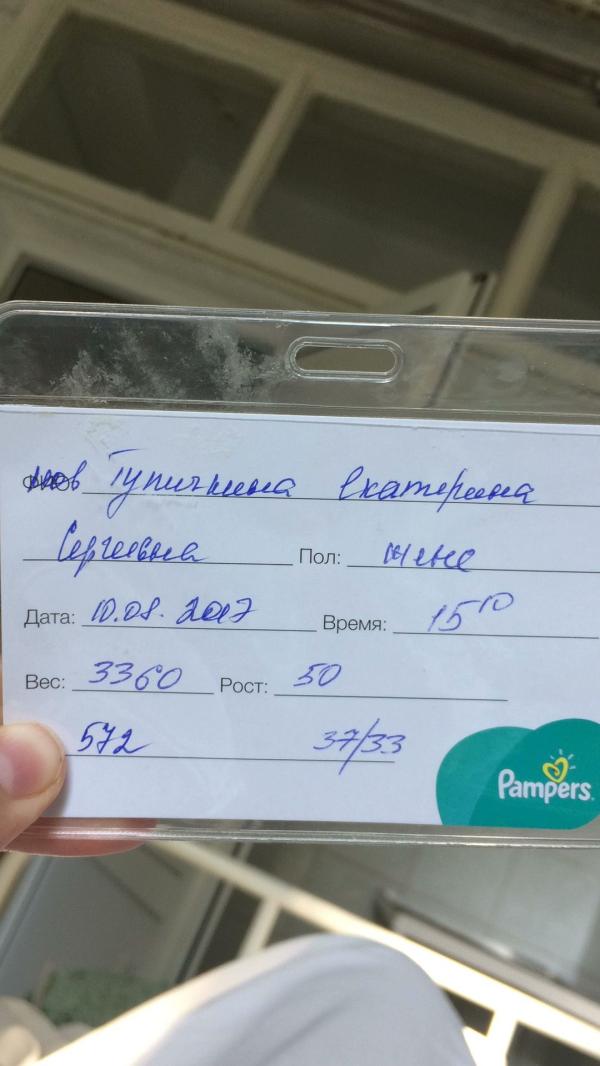 Тупичкина Екатерина
Сергеевна Пол: жене
Дата: 10.08.2017 Время: 15 10
Вес: 3360 Рост: 50
572 37/33
Pampers